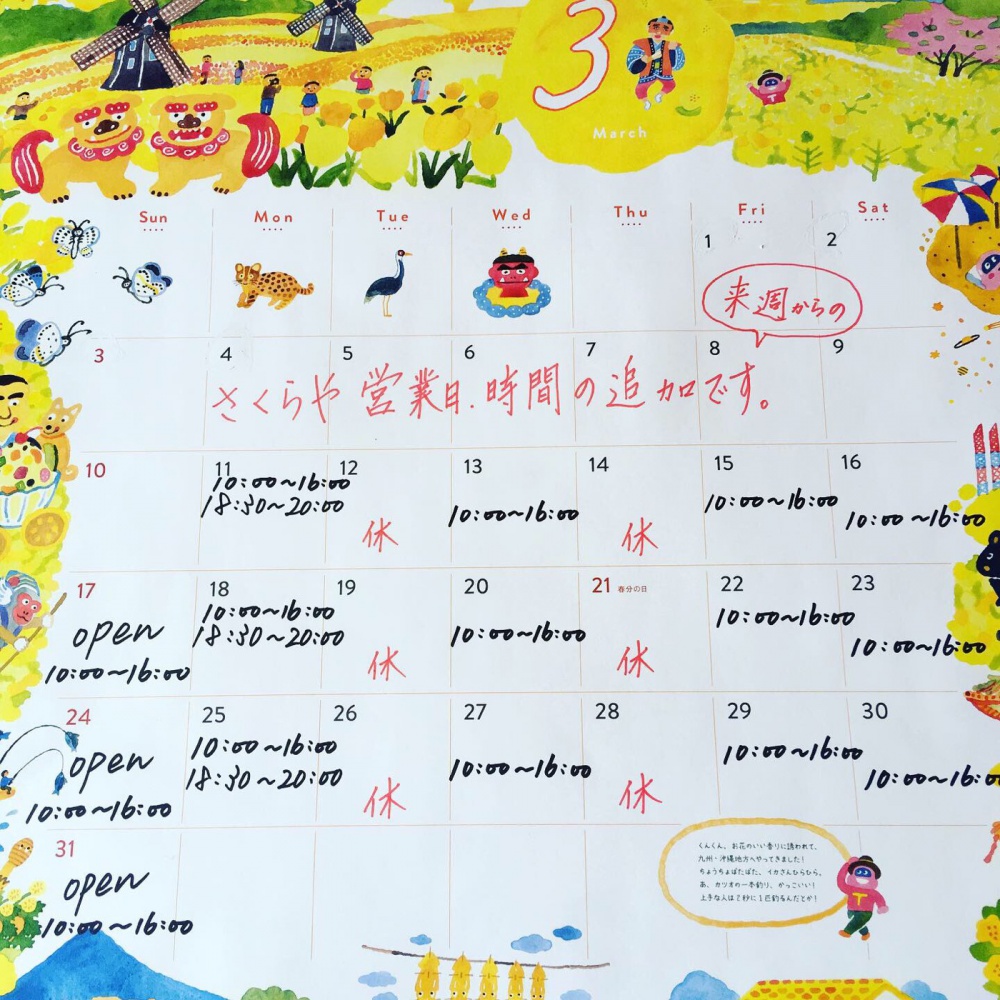 3
March
T
Sun Mon Tue Wed Thu Fri Sat
1 2
来週からの
3 4 5 6 7 8 9
さくらや営業日.時間の追加です。
10 11 12 13 14 15 16
10:00~16:00
18:30~20:00
休
10:00~16:00
休
10:00~16:00
10:00~16:00
17 18 19 20 21 春分の日 22 23
open
10:00~16:00
10:00~16:00
18:30~20:00
休
10:00~16:00
休
10:00~16:00
10:00~16:00
24 25 26 27 28 29 30
open
10:00~16:00
10:00~16:00
18:30~20:00
休
10:00~16:00
休
10:00~16:00
10:00~16:00
31
open
10:00~16:00
くんくん、お花のいい香りに誘われて、
九州・沖縄地方へやってきました!
ちょうちょぱたぱた、イカさんひらひら。
あ、カツオの一本釣り、かっこいい!
上手な人は2秒に1匹釣るんだとか!
T